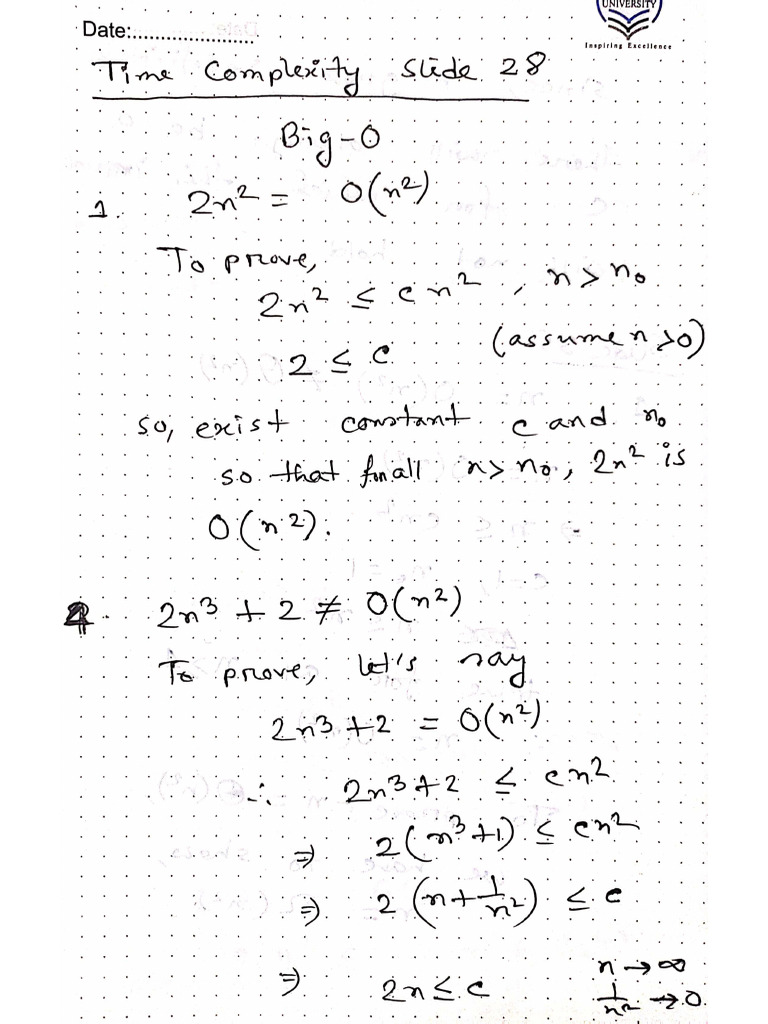 UNIVERSITY
Inspiring Excellence
Date:.......................
Time Complexity Slide 28
Big-O
1. 2n² = O(n²)
To prove,
2n² ≤ cn², n > n₀
(assume n >0)
2 ≤ c
so, exist constant c and n₀
so that for all n > n₀, 2n² is
O(n²).
4. 2n³ + 2 ≠ O(n²)
To prove, let's say
2n³ + 2 = O(n²)
∴ 2n³ + 2 ≤ cn²
⇒ 2(n³+1) ≤ cn²
⇒ 2(n+1/n²) ≤ c
⇒ 2n ≤ c n → ∞
1/n² → 0